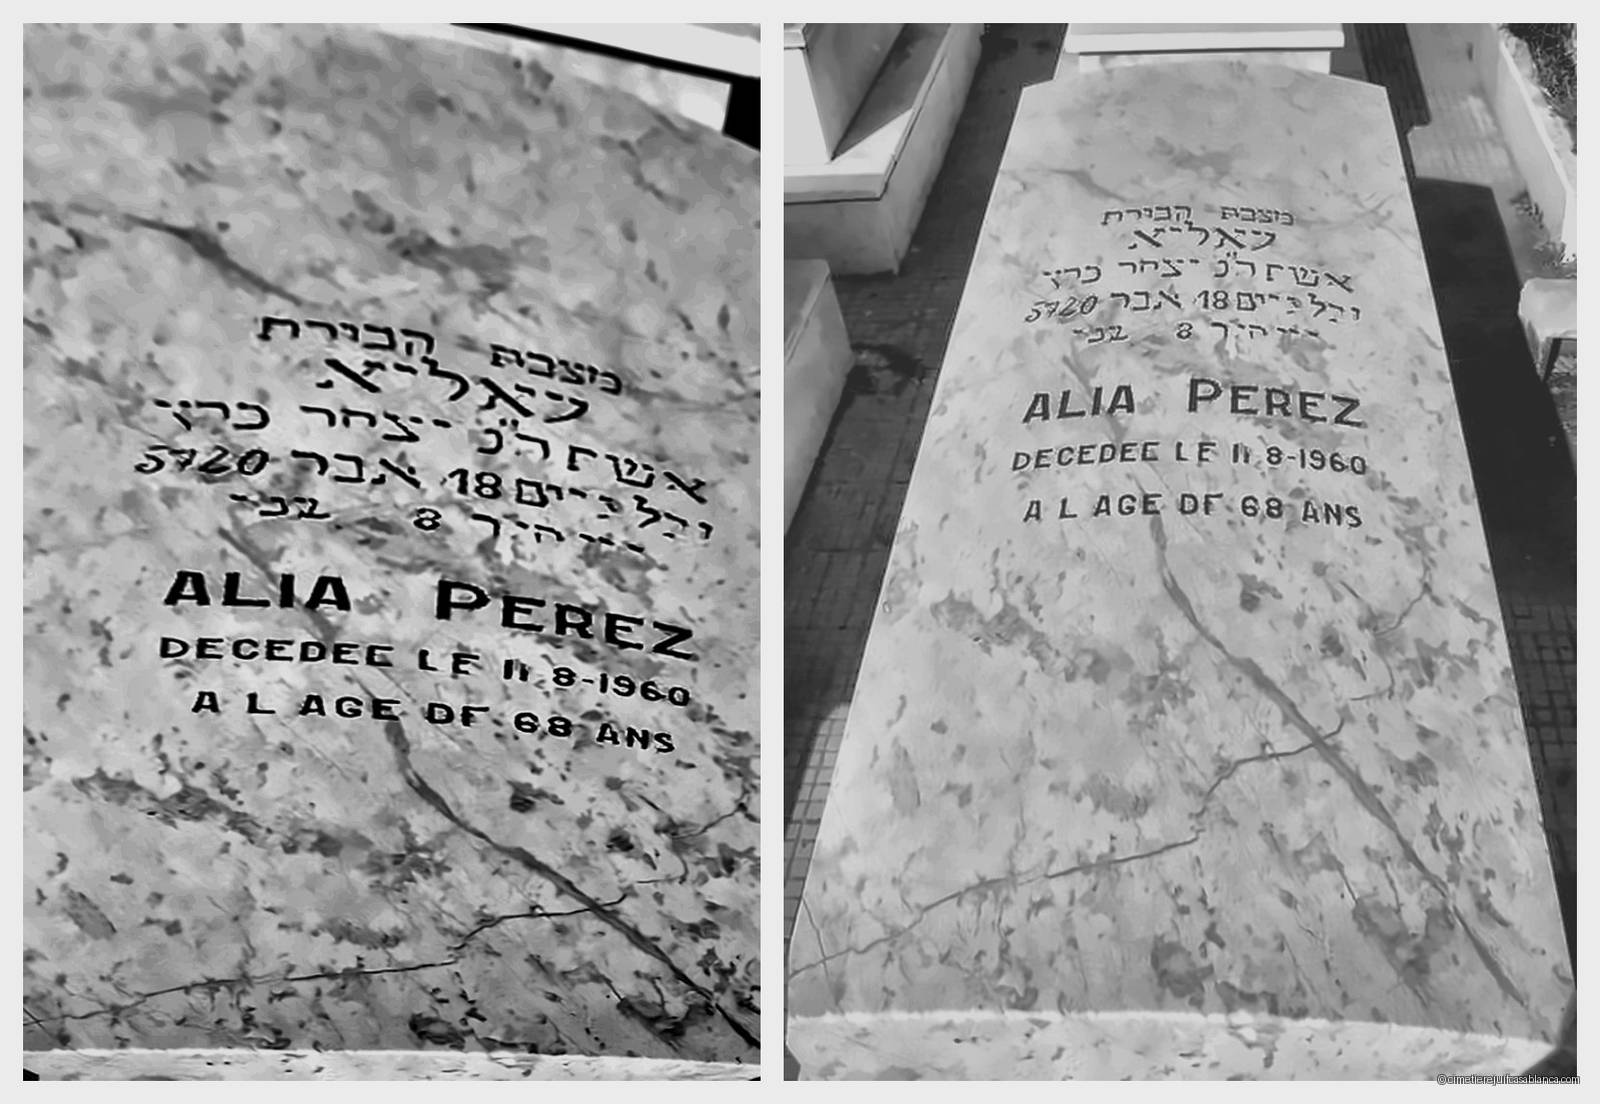 מצבת קבורת
עאליא
אשת ה"נ יצחר פרץ
18 אבר 5720
8
ALIA PEREZ
DECEDEE LE 11.8-1960
A L AGE DE 68 ANS
מצבת קבורת
עאליא
אשת ה"נ יצחר פרץ
18 אבר 5720
8
ALIA PEREZ
DECEDEE LE 11.8-1960
A L AGE DE 68 ANS
©cimetierejuifcasablanca.com